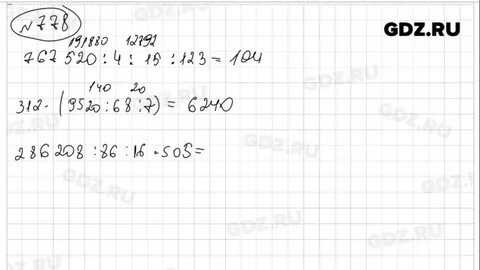 №778
GDZ.RU
191880 12792
767520 : 4 : 15 : 123 = 104
140 20
312 · (9520 : 68 : 7) = 6240
286208 : 86 : 16 · 505 =